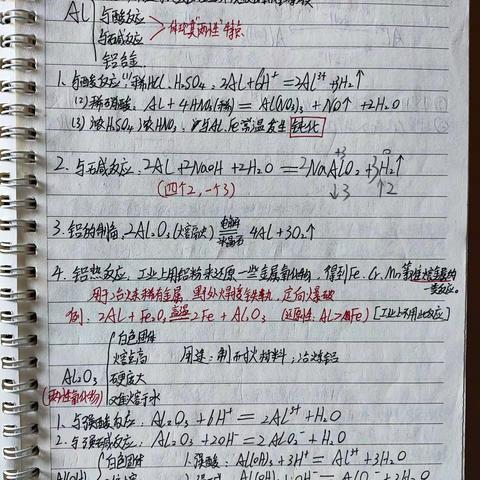 Al
与酸反应
与碱反应
体现其"两性"特点
铝合金
1. 与酸反应:(1)稀HCl、H₂SO₄, 2Al+6H⁺=2Al³⁺+3H₂↑
(2)稀硝酸. Al+4HNO₃(稀)=Al(NO₃)₃+NO↑+2H₂O
(3)浓H₂SO₄、浓HNO₃. 与Al、Fe常温发生钝化
2. 与碱反应. 2Al+2NaOH+2H₂O=2NaAlO₂+3H₂↑
+3 0
(四个2,一个3) ↓3 ↑2
3. 铝的制备. 2Al₂O₃(熔融) 电解 冰晶石 4Al+3O₂↑
4. 铝热反应. 工业上用铝粉来还原一些金属氧化物, 得到Fe、Cr、Mn等难熔金属的一类反应。
用于冶炼稀有金属、野外焊接铁轨, 定向爆破
例: 2Al+Fe₂O₃ 高温 2Fe+Al₂O₃ (还原性:Al>Fe) [工业上不用此反应]
Al₂O₃
(两性氧化物)
白色固体
熔点高 用途: 制耐火材料; 冶炼铝
硬度大
难溶于水
1. 与强酸反应: Al₂O₃+6H⁺=2Al³⁺+H₂O
2. 与强碱反应: Al₂O₃+2OH⁻=2AlO₂⁻+H₂O
白色固体 1. 强酸: Al(OH)₃+3H⁺=Al³⁺+3H₂O